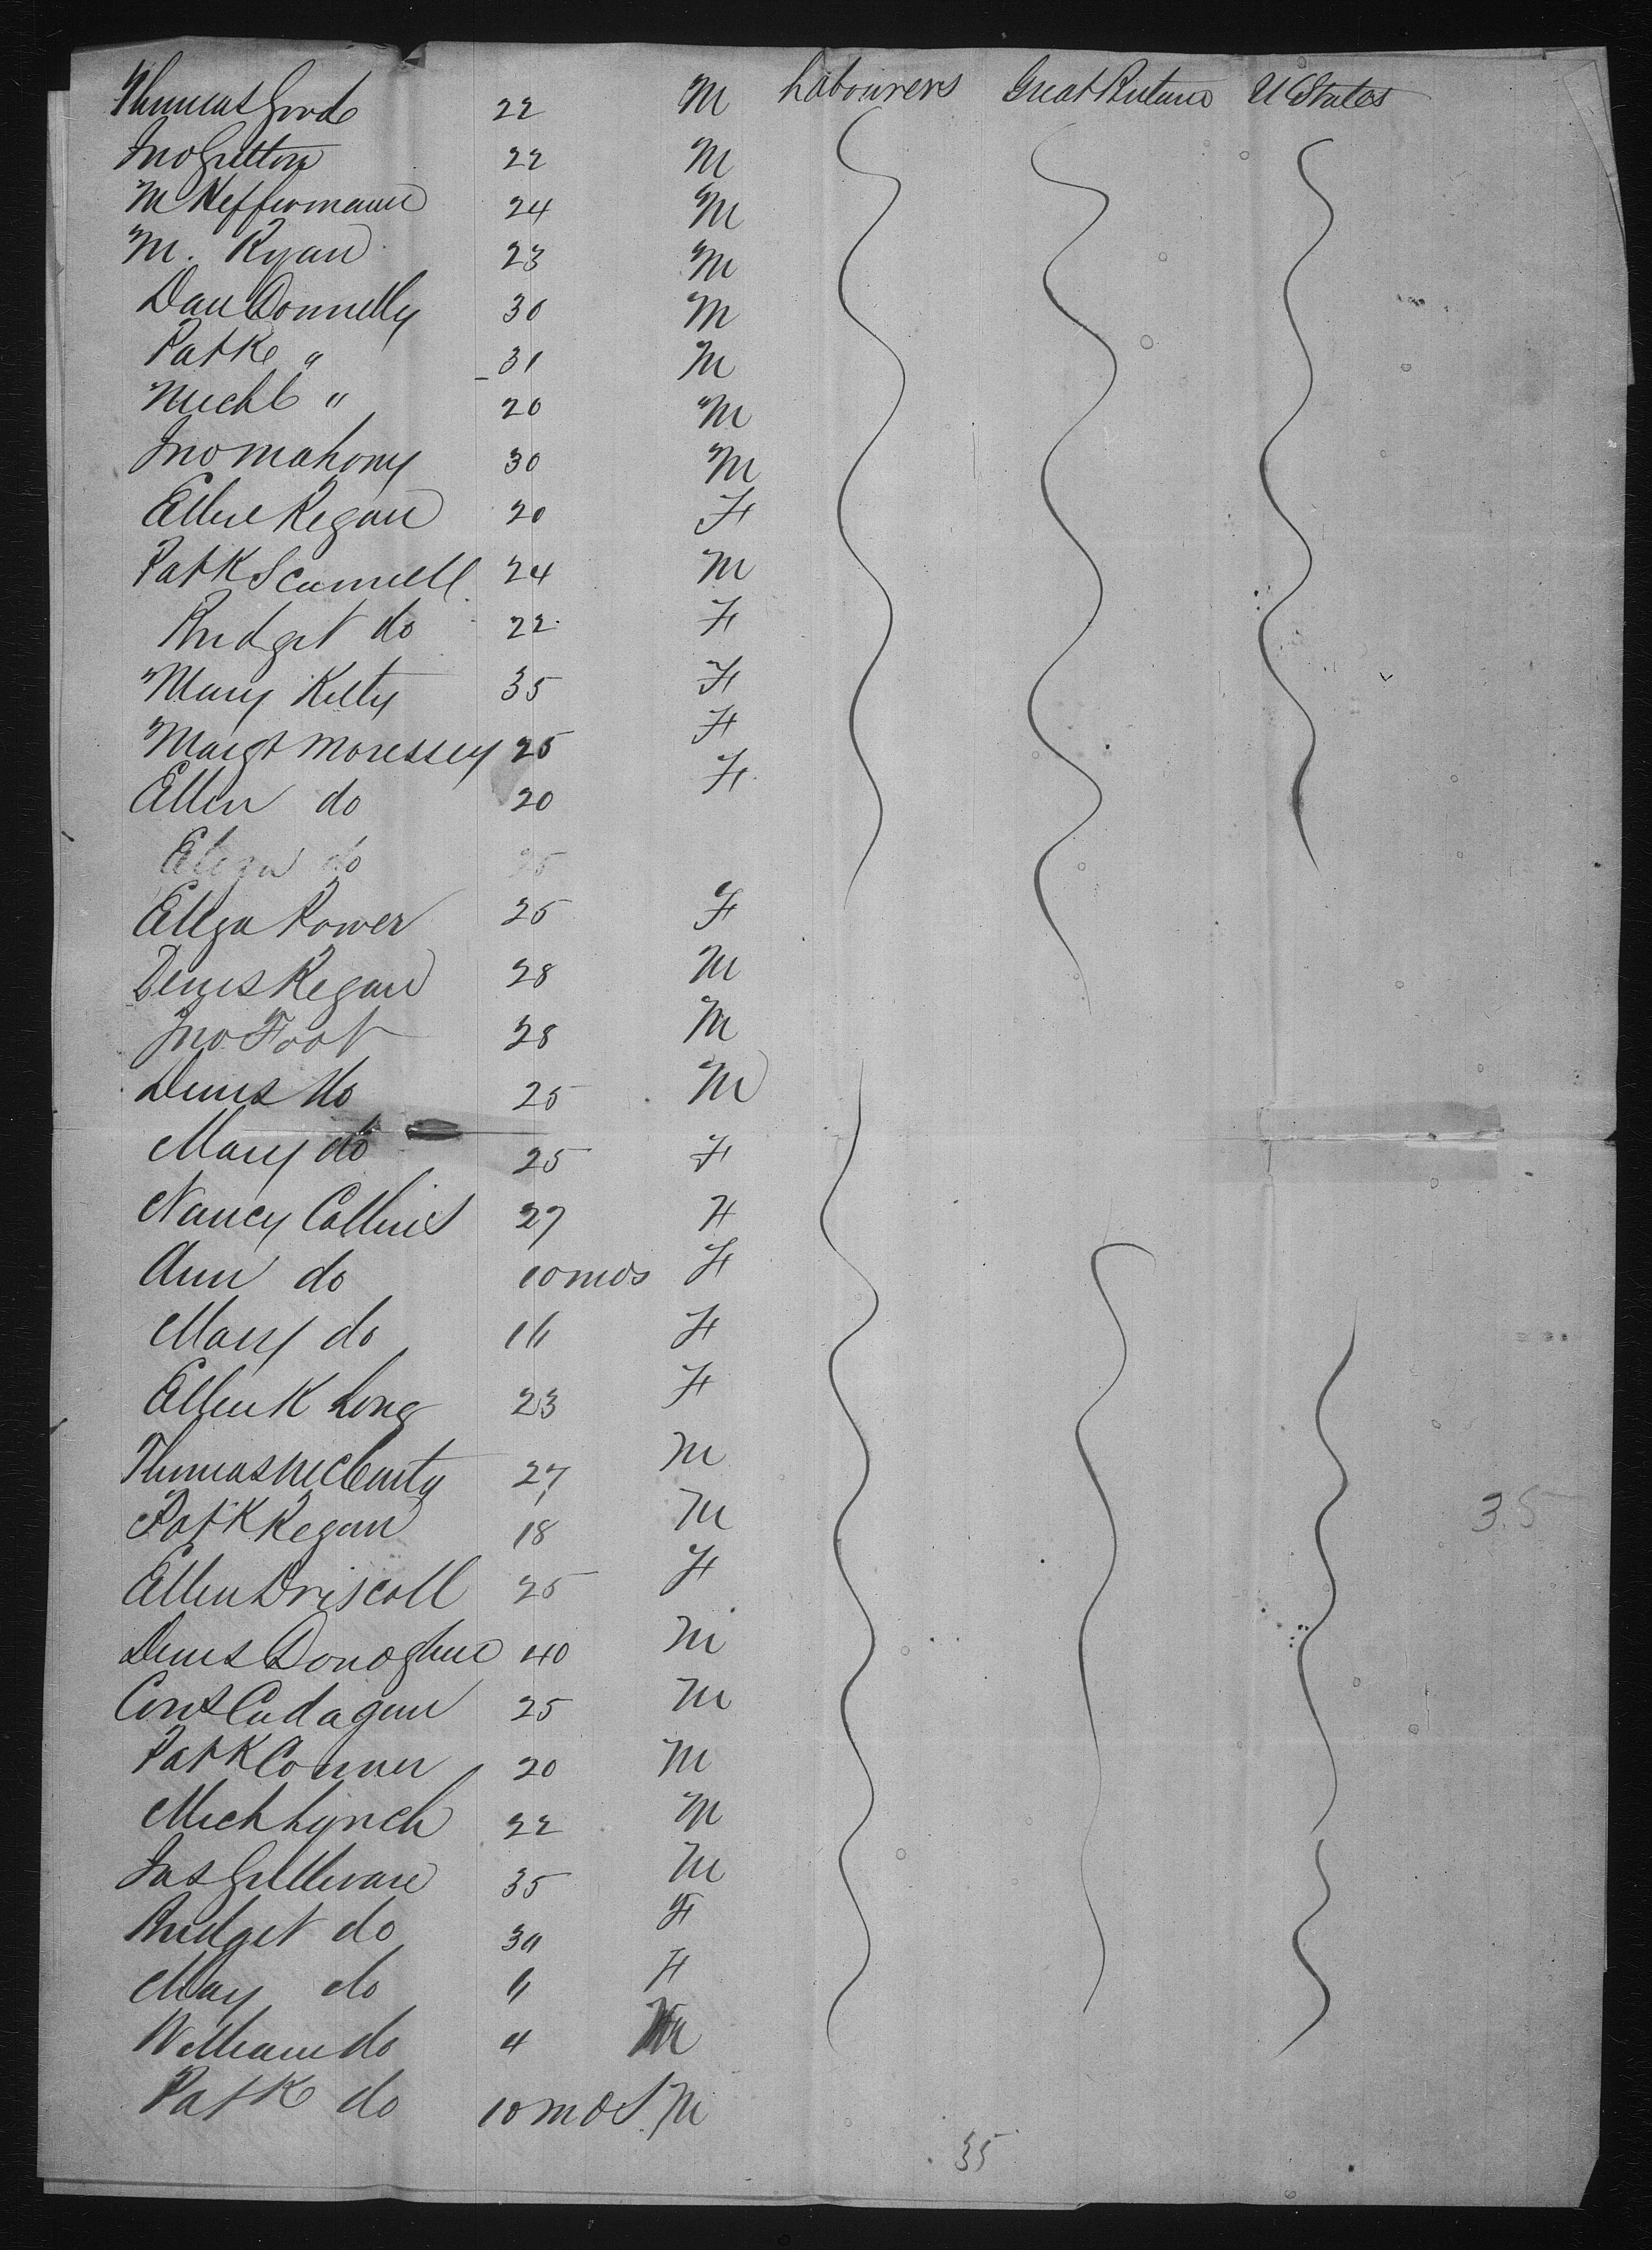 Thomas Goode 22 M Labourers Great Britain U States
Jno Sutton 22 M
M Heffermann 24 M
M. Ryan 23 M
Dan Donnelly 30 M
Patk " 31 M
Michl " 20 M
Jno Mahony 30 M
Ellen Regan 20 F
Patk Scannell 24 M
Bridget do 22 F
Mary Kelty 35 F
Margt Moressey 25 F
Ellen do 20 F
Eliza do 25
Eliza Power 25 F
Denis Regan 28 M
Jno Foot 28 M
Denis do 25 M
Mary do 25 F
Nancy Collins 27 F
Ann do 10 mos F
Mary do F
Ellen K Long 23 F
Thomas McCarty 27 M
Patk Regan 18 M
35
Ellen Driscoll 25 F
Denis Donoghue 40 M
Corns Cadagan 25 M
Patk Conner 20 M
Mich Lynch 22 M
Jas Sullivan 35 M
Bridget do 30 F
May do F
William do 4 M
Patk do 10 mos M
35